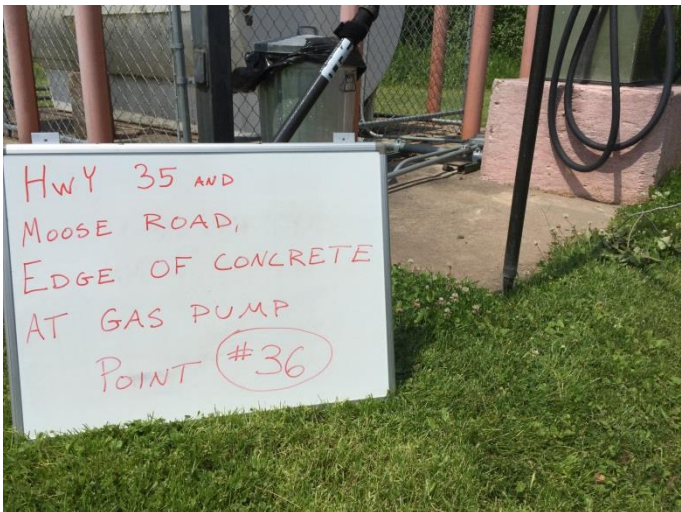 HWY 35 AND
MOOSE ROAD,
EDGE OF CONCRETE
AT GAS PUMP
POINT #36